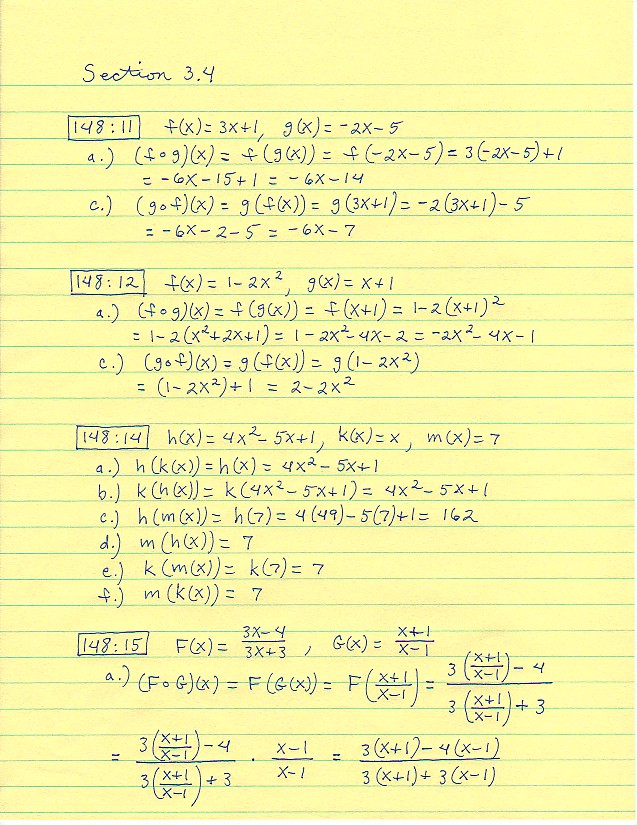 Section 3.4
148:11 f(x) = 3x+1, g(x) = -2x-5
a.) (f∘g)(x) = f(g(x)) = f(-2x-5) = 3(-2x-5)+1
= -6x-15+1 = -6x-14
c.) (g∘f)(x) = g(f(x)) = g(3x+1) = -2(3x+1)-5
= -6x-2-5 = -6x-7
148:12 f(x) = 1-2x², g(x) = x+1
a.) (f∘g)(x) = f(g(x)) = f(x+1) = 1-2(x+1)²
= 1-2(x²+2x+1) = 1-2x²-4x-2 = -2x²-4x-1
c.) (g∘f)(x) = g(f(x)) = g(1-2x²)
= (1-2x²)+1 = 2-2x²
148:14 h(x) = 4x²-5x+1, k(x) = x, m(x) = 7
a.) h(k(x)) = h(x) = 4x²-5x+1
b.) k(h(x)) = k(4x²-5x+1) = 4x²-5x+1
c.) h(m(x)) = h(7) = 4(49)-5(7)+1 = 162
d.) m(h(x)) = 7
e.) k(m(x)) = k(7) = 7
f.) m(k(x)) = 7
148:15 F(x) = (3x-4)/(3x+3), G(x) = (x+1)/(x-1)
a.) (F∘G)(x) = F(G(x)) = F((x+1)/(x-1)) = (3((x+1)/(x-1))-4)/(3((x+1)/(x-1))+3)
= (3((x+1)/(x-1))-4)/(3((x+1)/(x-1))+3) · (x-1)/(x-1) = (3(x+1)-4(x-1))/(3(x+1)+3(x-1))